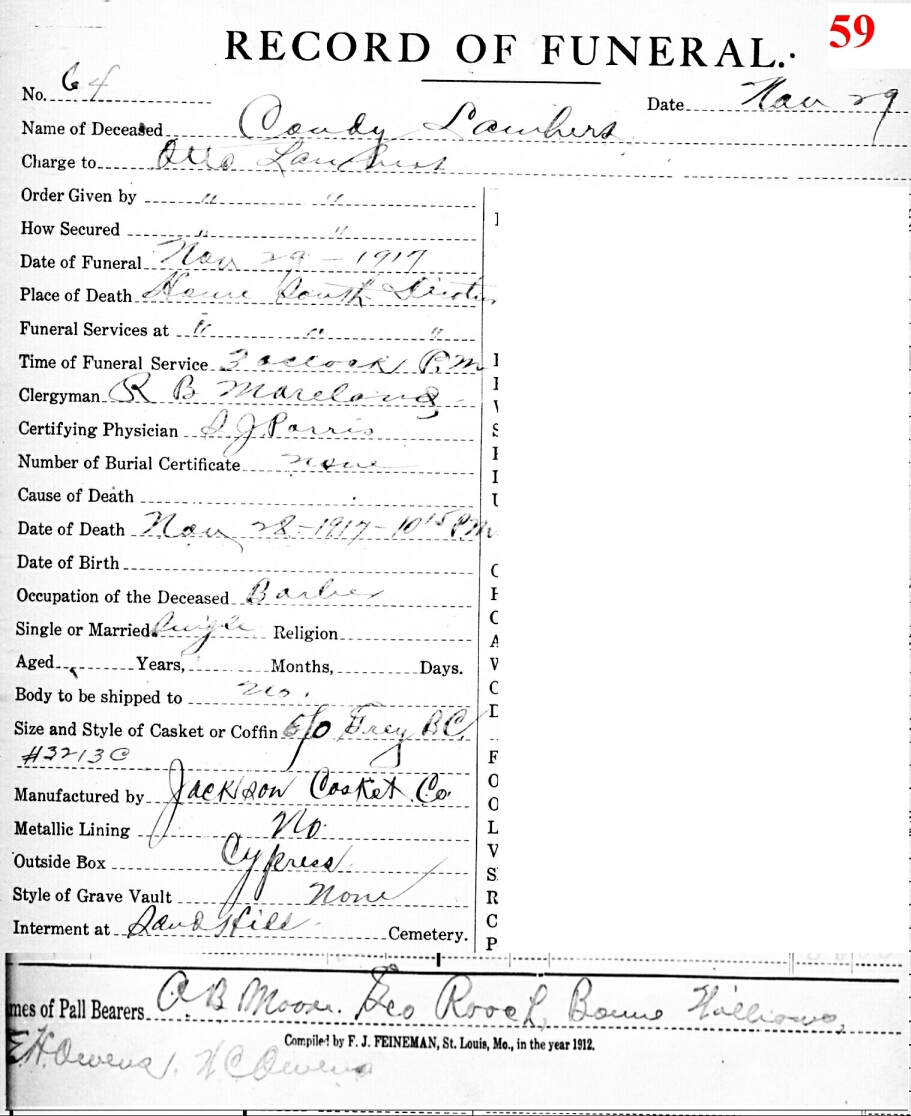 59
RECORD OF FUNERAL.
No. 64
Date Nov 29
Name of Deceased Candy Lambers
Charge to Otto
Order Given by " "
How Secured " "
Date of Funeral Nov 29 - 1917
Place of Death Home South
Funeral Services at " " "
Time of Funeral Service 3 oclock P.M
Clergyman R B Moreland
Certifying Physician J Parris
Number of Burial Certificate none
Cause of Death
Date of Death Nov 28 - 1917 - 10 15 P.M
Date of Birth
Occupation of the Deceased Barber
Single or Married Single Religion
Aged Years, Months, Days.
Body to be shipped to no.
Size and Style of Casket or Coffin 6/0 Grey B.C.
#3213C
Manufactured by Jackson Casket Co.
Metallic Lining No.
Outside Box Cypress
Style of Grave Vault None
Interment at Sand Hill Cemetery.
mes of Pall Bearers A.B Moore. Geo Roach, Williams,
Compiled by F. J. FEINEMAN, St. Louis, Mo., in the year 1912.
E.H. Owens, H C Owens